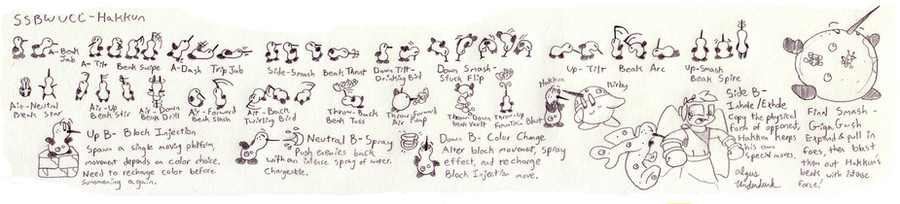 SSBWUCC-Hakkun
A-Beak
Jab
A-Tilt
Beak Swipe
A-Dash
Trip Jab
Side-Smash
Beak Thrust
Down Tilt-
Drinking Bird
Down Smash-
Stuck Flip
Up-Tilt
Beak Arc
Up-Smash
Beak Spire
Air-Neutral
Beak Star
Air-Up
Beak Stir
Air-Down
Beak Drill
Air-Forward
Beak Stab
Air-Back
Twirling Bird
Throw-Back
Beak Toss
Throw Forward
Air Pump
Throw-Down
Beak Vault
Throw-Up
Fountain Blast
Hakkun
Kirby
Side B-
Inhale/Exhale
Copy the physical
form of opponent,
Hakkun keeps
his own
special moves.
Argus
Final Smash-
Giga Crush
Expand & pull in
foes, then blast
them out Hakkun's
beak with intense
force!
Up B- Block Injection
Spawn a single moving platform,
movement depends on color choice.
Need to recharge color before
summoning again.
Neutral B-Spray
Push enemies back
with an intense spray of water.
Chargeable.
Down B- Color Change
Alter block movement, spray
effect, and recharge
Block Injection move.